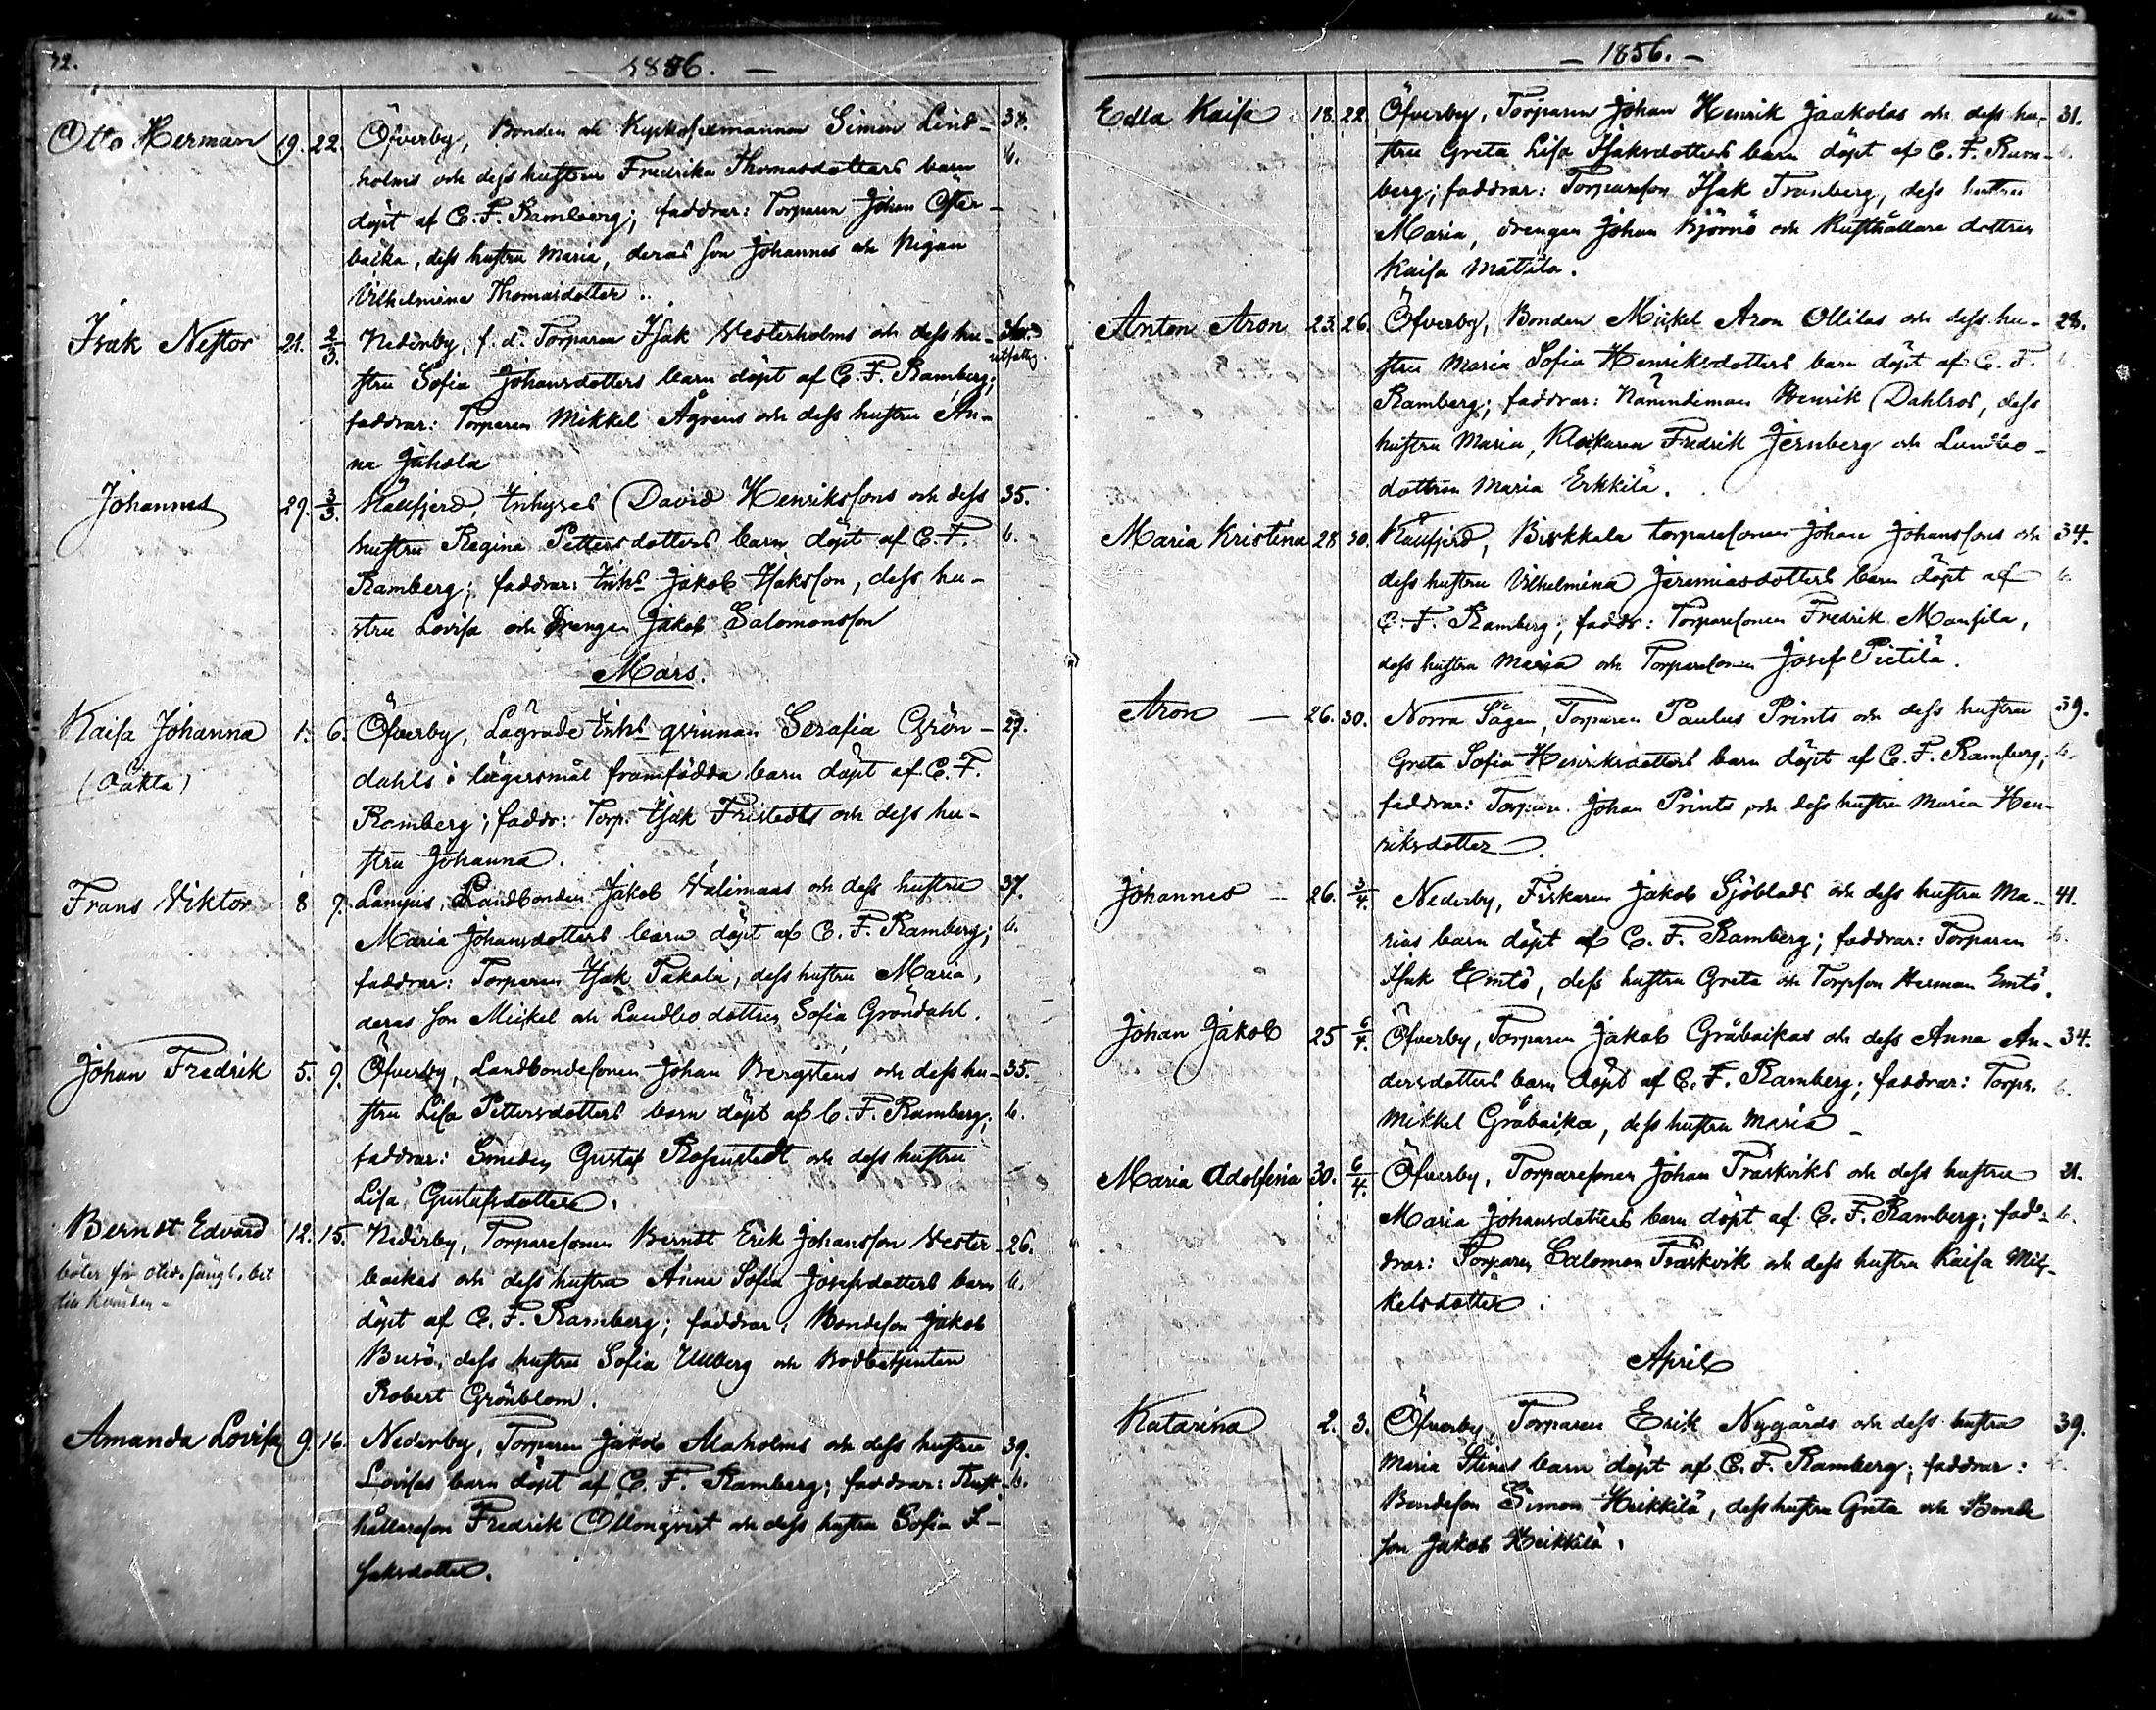 72.
— 1856. —
Otto Herman 19. 22. Öfverby, Bonden och Kyrkosexmannen Simon Lind- 38.
holms och dess hustrus Fredrika Thomasdotters barn 6.
döpt af C. F. Ramberg; faddrar: Torparen Johan Öster-
backa, dess hustru Maria, deras son Johannes och Pigan
Vilhelmina Thomasdotter.
Isak Nestor 21. 2/3. Nederby, f. d. Torparen Isak Vesterholms och dess hu-
stru Sofia Johansdotters barn döpt af C. F. Ramberg;
faddrar: Torparen Mikkel Ågrens och dess hustru An-
na Juhola
Johannes 29. 3/3. Kållfjerd, Inhyses David Henrikssons och dess 35.
hustru Regina Pettersdotters barn döpt af C. F. 6.
Ramberg; faddrar: Inhs Jakob Isaksson, dess hu-
stru Lovisa och Drengen Jakob Salomonsson
Mars.
Kaisa Johanna 1. 6. Öfverby, Lägrade Inhs qvinnan Serafia Grön- 27.
(oäkta) dahls i lägersmål framfödda barn döpt af C. F.
Ramberg; faddr: Torp. Isak Fristedts och dess hu-
stru Johanna.
Frans Viktor 8 9. Lampis, Landbonden Jakob Välimaas och dess hustru 37.
Maria Johansdotters barn döpt af C. F. Ramberg; 6.
faddrar: Torparen Isak Takala, dess hustru Maria,
deras son Mickel och Landbodottren Sofia Gröndahl.
Johan Fredrik 5. 9. Öfverby, Landbondesonen Johan Bergstens och dess hu- 35.
stru Lisa Pettersdotters barn döpt af C. F. Ramberg; 6.
faddrar: Smeden Gustaf Rosenstedt och dess hustru
Lisa Gustafsdotter.
Berndt Edvard 12. 15. Nederby, Torparesonen Berndt Erik Johansson Vester- 26.
böter för otid. sängl. bet backas och dess hustru Anna Sofia Josefsdotters barn 6.
döpt af C. F. Ramberg; faddrar: Bondeson Jakob
Busö, dess hustru Sofia Ullberg och Bodbetjenten
Robert Grönblom.
Amanda Lovisa 9. 16. Nederby, Torparen Jakob Alaholms och dess hustru 39.
Lovisas barn döpt af C. F. Ramberg; faddrar: Rust- 6.
hållareson Fredrik Öllonqvist och dess hustru Sofia I-
saksdotter.
— 1856. —
Edla Kaisa 18. 22. Öfverby, Torparen Johan Henrik Jaakolas och dess hu- 31.
stru Greta Lisa Isaksdotters barn döpt af C. F. Ram- 6.
berg; faddrar: Torpareson Isak Tranberg, dess hustru
Maria, drengen Johan Björnö och Rusthållare dottren
Kaisa Mattila.
Anton Aron 23. 26. Öfverby, Bonden Mickel Aron Ollilas och dess hu- 28.
stru Maria Sofia Henriksdotters barn döpt af C. F. 6.
Ramberg; faddrar: Nämndeman Henrik Dahlros, dess
hustru Maria, Klockaren Fredrik Jernberg och Landbo-
dottren Maria Erkkilä.
Maria Kristina 28 30. Kållfjerd, Birkkala torparesonen Johan Johanssons och 34.
dess hustru Vilhelmina Jeremiasdotters barn döpt af 6.
C. F. Ramberg; faddr: Torparesonen Fredrik Mansila,
dess hustru Maria och Torparesonen Josef Pietilä.
Aron — 26. 30. Norra Sågen, Torparen Paulus Prints och dess hustru 39.
Greta Sofia Henriksdotters barn döpt af C. F. Ramberg; 6.
faddrar: Torparen Johan Prints, och dess hustru Maria Hen-
riksdotter.
Johannes — 26. 3/4. Nederby, Fiskaren Jakob Sjöblads och dess hustru Ma- 41.
rias barn döpt af C. F. Ramberg; faddrar: Torparen 6.
Isak Emtö, dess hustru Greta och Torpson Herman Emtö.
Johan Jakob 25 6/4. Öfverby, Torparen Jakob Gråbackas och dess Anna An- 34.
dersdotters barn döpt af C. F. Ramberg; faddrar: Torpr. 6.
Mikkel Gråbacka, dess hustru Maria —
Maria Adolfina 30. 6/4. Öfverby, Torparesonen Johan Träskviks och dess hustru 21.
Maria Johansdotters barn döpt af C. F. Ramberg; fad- 6.
drar: Torparen Salomon Träskvik och dess hustru Kaisa Mik-
kelsdotter.
April
Katarina 2. 3. Öfverby, Torparen Erik Nygårds och dess hustru 39.
Maria Stinas barn döpt af C. F. Ramberg; faddrar: 6.
Bondeson Simon Heikkilä, dess hustru Greta och Bonde
son Jakob Heikkilä.